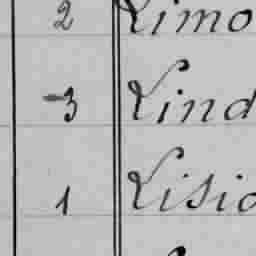 2 Limo
3 Lind
1 Lisio